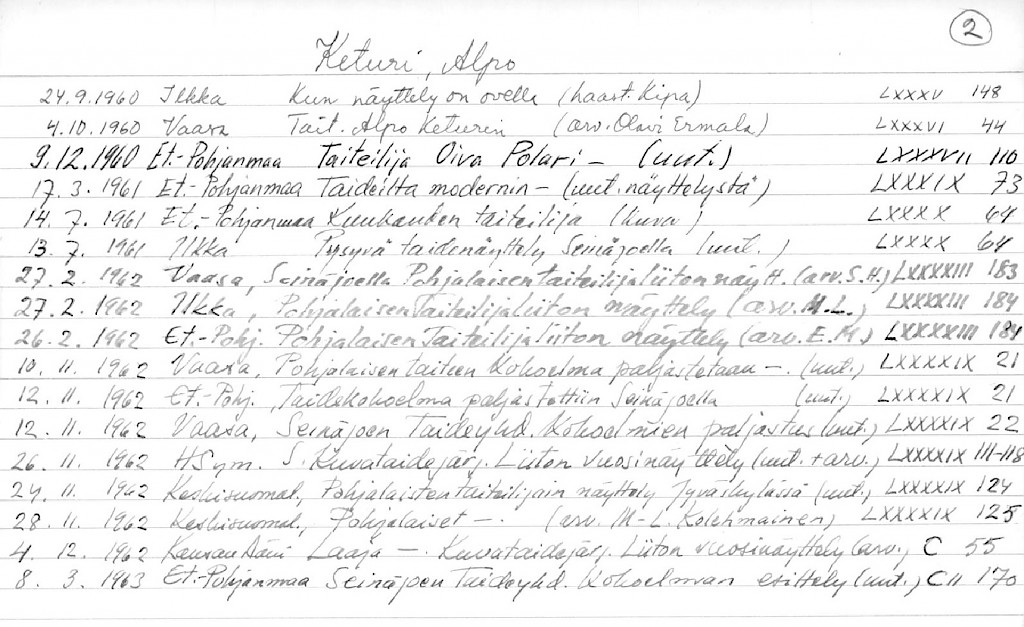 2
Keturi, Alpo
24.9.1960 Ilkka Kun näyttely on ovella (haast. Kipa) LXXXV 148
4.10.1960 Vaasa Tait. Alpo Keturin (arv. Olavi Ermala) LXXXVI 44
9.12.1960 Et.-Pohjanmaa Taiteilija Oiva Polari - (uut.) LXXXVII 110
17.3.1961 Et.-Pohjanmaa Taideilta modernin - (uut. näyttelystä) LXXXIX 73
14.7.1961 Et.-Pohjanmaa Kuukauden taiteilija (kuva) LXXXX 64
13.7.1961 Ilkka Pysyvä taidenäyttely Seinäjoella (uut.) LXXXX 64
27.2.1962 Vaasa, Seinäjoella Pohjalaisen taiteilijaliiton näytt. (arv. S.H.) LXXXXIII 183
27.2.1962 Ilkka, Pohjalaisen Taiteilijaliiton näyttely (arv. M.L.) LXXXXIII 184
26.2.1962 Et.-Pohj. Pohjalaisen Taiteilijaliiton näyttely (arv. E.M.) LXXXXIII 184
10.11.1962 Vaasa, Pohjalaisen taiteen kokoelma paljastetaan -. (uut.) LXXXXIX 21
12.11.1962 Et.-Pohj., Taidekokoelma paljastettiin Seinäjoella (uut.) LXXXXIX 21
12.11.1962 Vaasa, Seinäjoen Taideyhd. kokoelmien paljastus (uut.) LXXXXIX 22
26.11.1962 HSym. S. Kuvataidejärj. Liiton vuosinäyttely (uut. + arv.) LXXXXIX 111-118
24.11.1962 Keskisuomal., Pohjalaisten taiteilijain näyttely Jyväskylässä (uut.) LXXXXIX 124
28.11.1962 Keskisuomal., Pohjalaiset -. (arv. M-L. Kolehmainen) LXXXXIX 125
4.12.1962 Kansan Ääni Laaja -. Kuvataidejärj. Liiton vuosinäyttely (arv.) C 55
8.3.1963 Et.-Pohjanmaa Seinäjoen Taideyhd. kokoelman esittely (uut.) CII 170